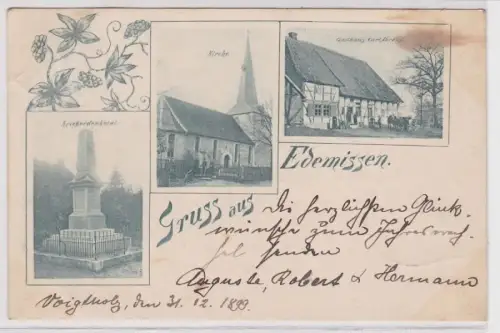 Kirche
Kriegerdenkmal
Edemissen.
Gruss aus
die herzlichsten Glück-
wünsche zum Jahreswech-
sel senden
Auguste, Robert & Hermann
Voigtholz, den 31. 12. 1899.